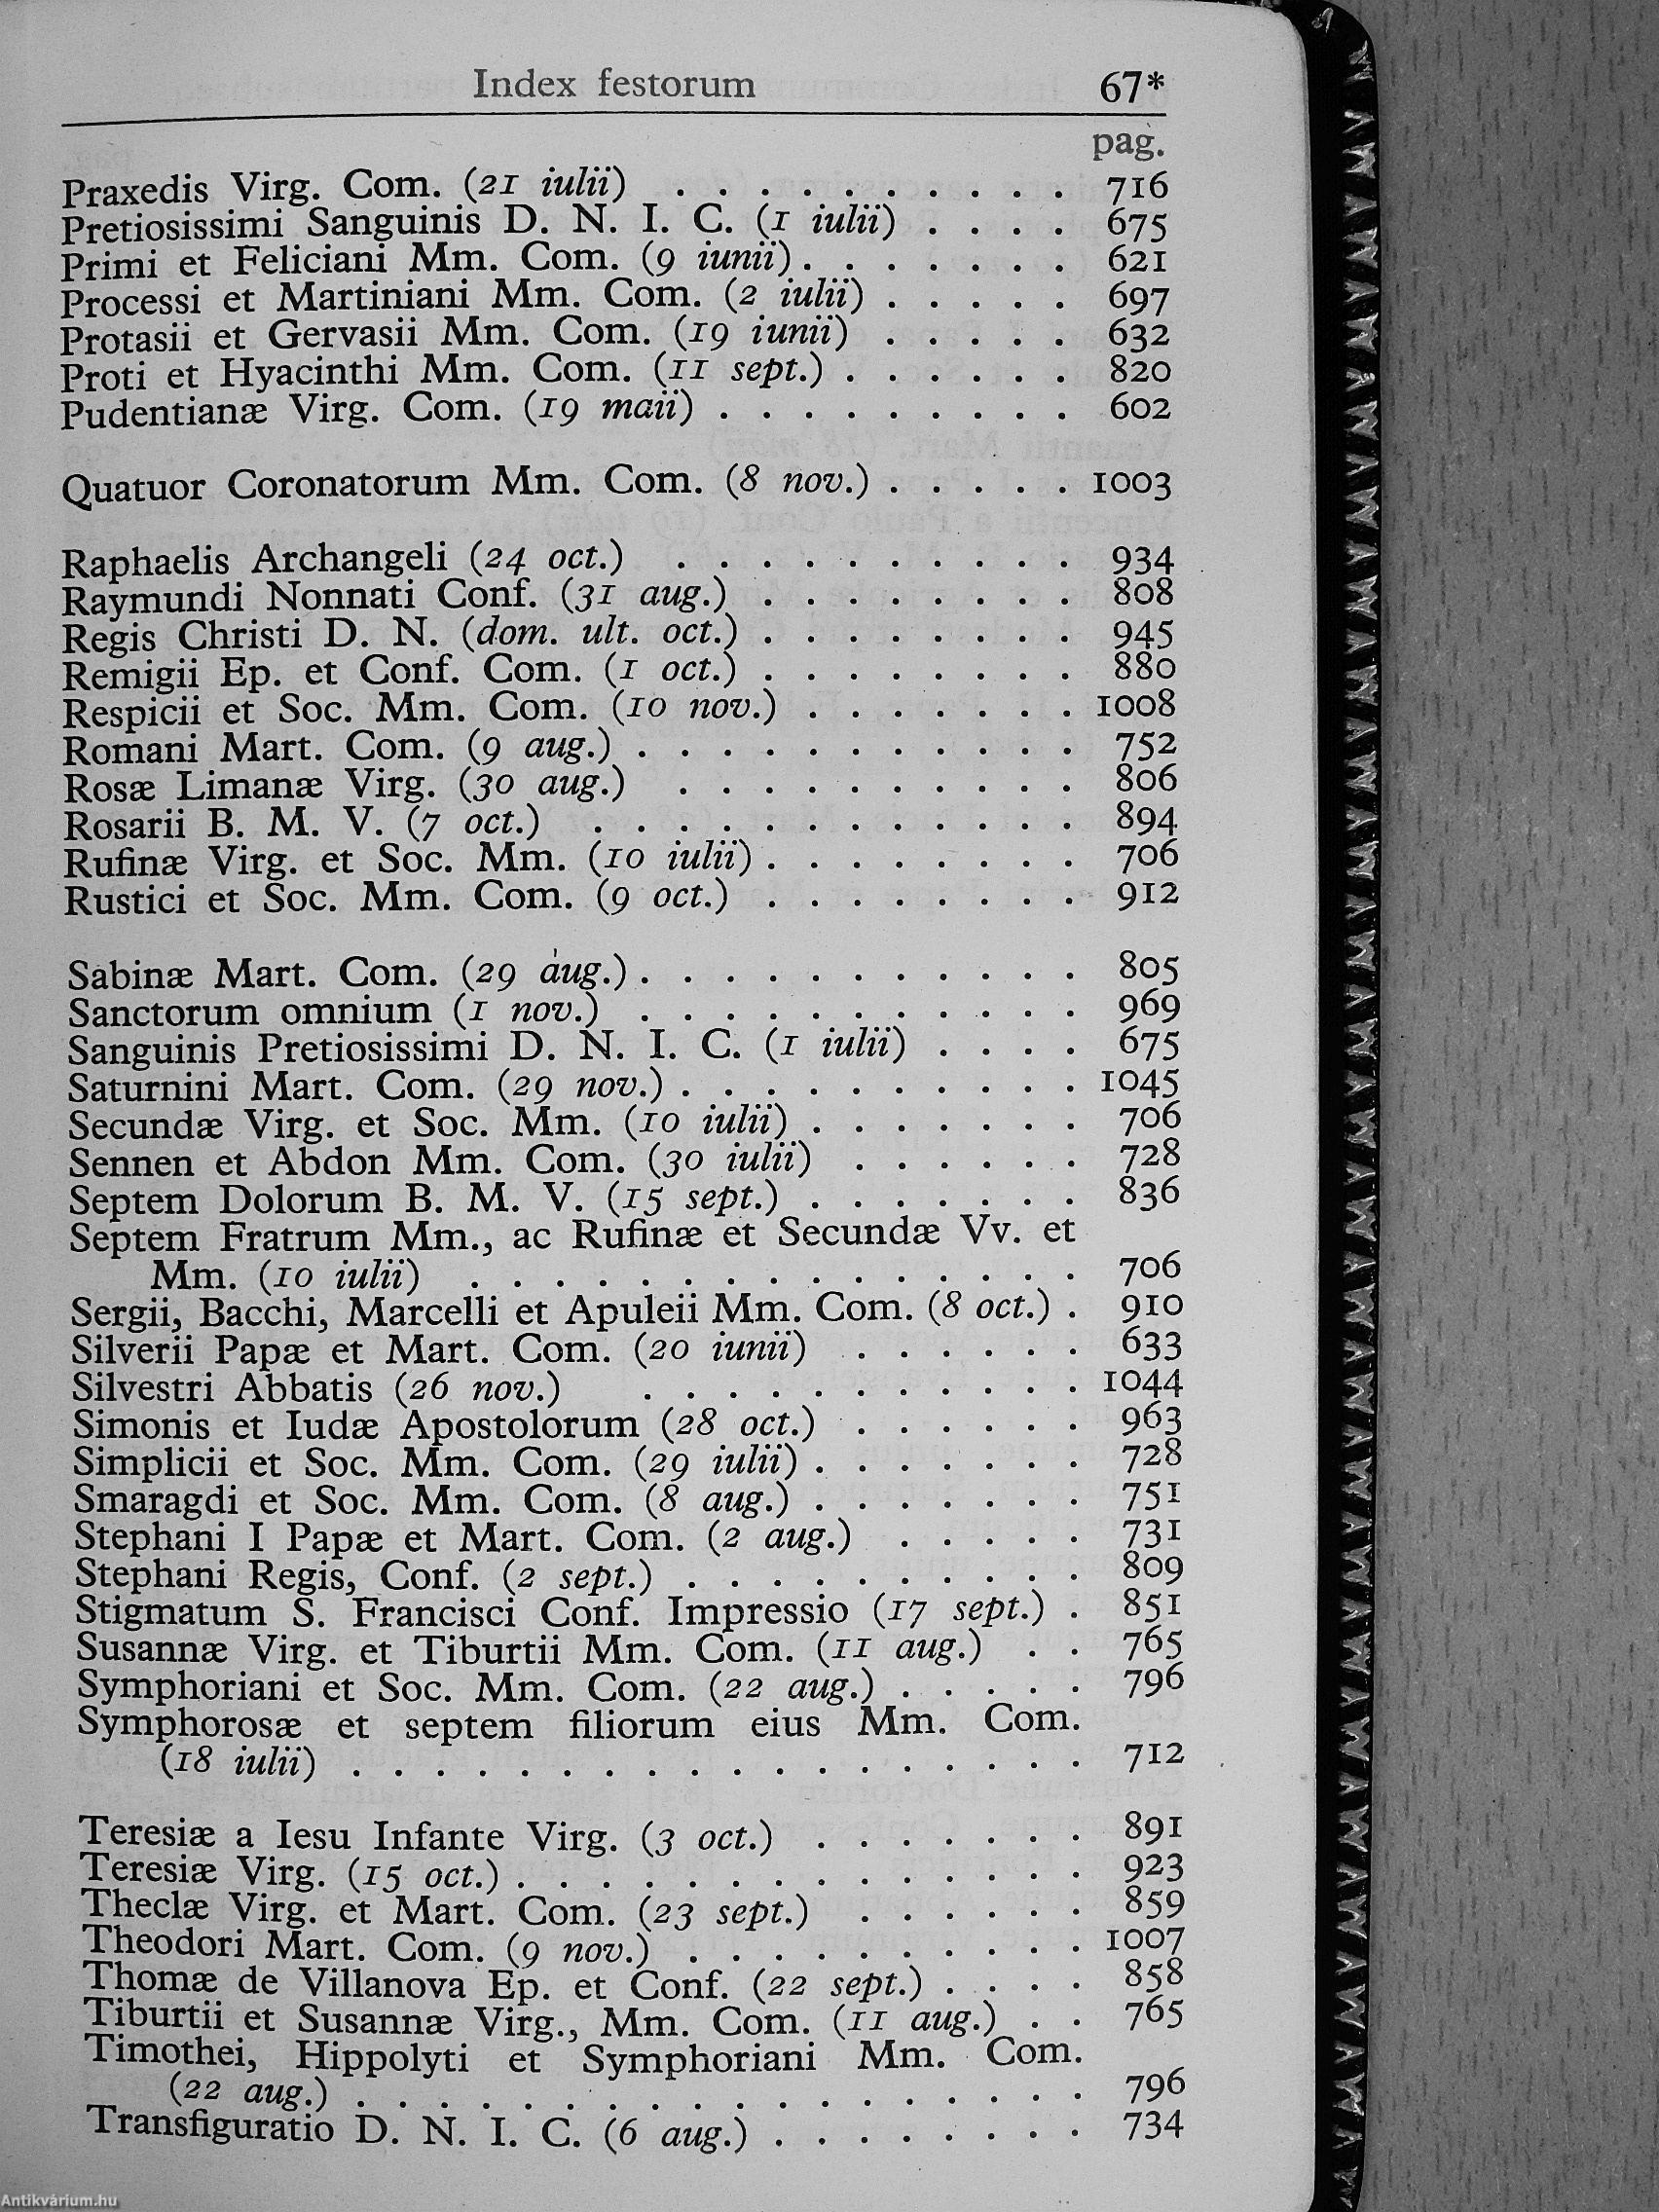 Index festorum 67*
pag.
Praxedis Virg. Com. (21 iulii) . . . . . . . . . . 716
Pretiosissimi Sanguinis D. N. I. C. (1 iulii) . . . . 675
Primi et Feliciani Mm. Com. (9 iunii) . . . . . . . 621
Processi et Martiniani Mm. Com. (2 iulii) . . . . . 697
Protasii et Gervasii Mm. Com. (19 iunii) . . . . . 632
Proti et Hyacinthi Mm. Com. (11 sept.) . . . . . . 820
Pudentianæ Virg. Com. (19 maii) . . . . . . . . . 602
Quatuor Coronatorum Mm. Com. (8 nov.) . . . . . 1003
Raphaelis Archangeli (24 oct.) . . . . . . . . . . 934
Raymundi Nonnati Conf. (31 aug.) . . . . . . . . 808
Regis Christi D. N. (dom. ult. oct.) . . . . . . . . 945
Remigii Ep. et Conf. Com. (1 oct.) . . . . . . . . 880
Respicii et Soc. Mm. Com. (10 nov.) . . . . . . . 1008
Romani Mart. Com. (9 aug.) . . . . . . . . . . . 752
Rosæ Limanæ Virg. (30 aug.) . . . . . . . . . . 806
Rosarii B. M. V. (7 oct.) . . . . . . . . . . . . 894
Rufinæ Virg. et Soc. Mm. (10 iulii) . . . . . . . . 706
Rustici et Soc. Mm. Com. (9 oct.) . . . . . . . . 912
Sabinæ Mart. Com. (29 aug.) . . . . . . . . . . . 805
Sanctorum omnium (1 nov.) . . . . . . . . . . . 969
Sanguinis Pretiosissimi D. N. I. C. (1 iulii) . . . . 675
Saturnini Mart. Com. (29 nov.) . . . . . . . . . . 1045
Secundæ Virg. et Soc. Mm. (10 iulii) . . . . . . . 706
Sennen et Abdon Mm. Com. (30 iulii) . . . . . . 728
Septem Dolorum B. M. V. (15 sept.) . . . . . . . 836
Septem Fratrum Mm., ac Rufinæ et Secundæ Vv. et
Mm. (10 iulii) . . . . . . . . . . . . . . . 706
Sergii, Bacchi, Marcelli et Apuleii Mm. Com. (8 oct.) . 910
Silverii Papæ et Mart. Com. (20 iunii) . . . . . . 633
Silvestri Abbatis (26 nov.) . . . . . . . . . . . 1044
Simonis et Iudæ Apostolorum (28 oct.) . . . . . . 963
Simplicii et Soc. Mm. Com. (29 iulii) . . . . . . . 728
Smaragdi et Soc. Mm. Com. (8 aug.) . . . . . . . 751
Stephani I Papæ et Mart. Com. (2 aug.) . . . . . 731
Stephani Regis, Conf. (2 sept.) . . . . . . . . . . 809
Stigmatum S. Francisci Conf. Impressio (17 sept.) . 851
Susannæ Virg. et Tiburtii Mm. Com. (11 aug.) . . 765
Symphoriani et Soc. Mm. Com. (22 aug.) . . . . . 796
Symphorosæ et septem filiorum eius Mm. Com.
(18 iulii) . . . . . . . . . . . . . . . . . . 712
Teresiæ a Iesu Infante Virg. (3 oct.) . . . . . . . 891
Teresiæ Virg. (15 oct.) . . . . . . . . . . . . . . 923
Theclæ Virg. et Mart. Com. (23 sept.) . . . . . . 859
Theodori Mart. Com. (9 nov.) . . . . . . . . . . 1007
Thomæ de Villanova Ep. et Conf. (22 sept.) . . . . 858
Tiburtii et Susannæ Virg., Mm. Com. (11 aug.) . . 765
Timothei, Hippolyti et Symphoriani Mm. Com.
(22 aug.) . . . . . . . . . . . . . . . . . . 796
Transfiguratio D. N. I. C. (6 aug.) . . . . . . . . 734
Antikvárium.hu